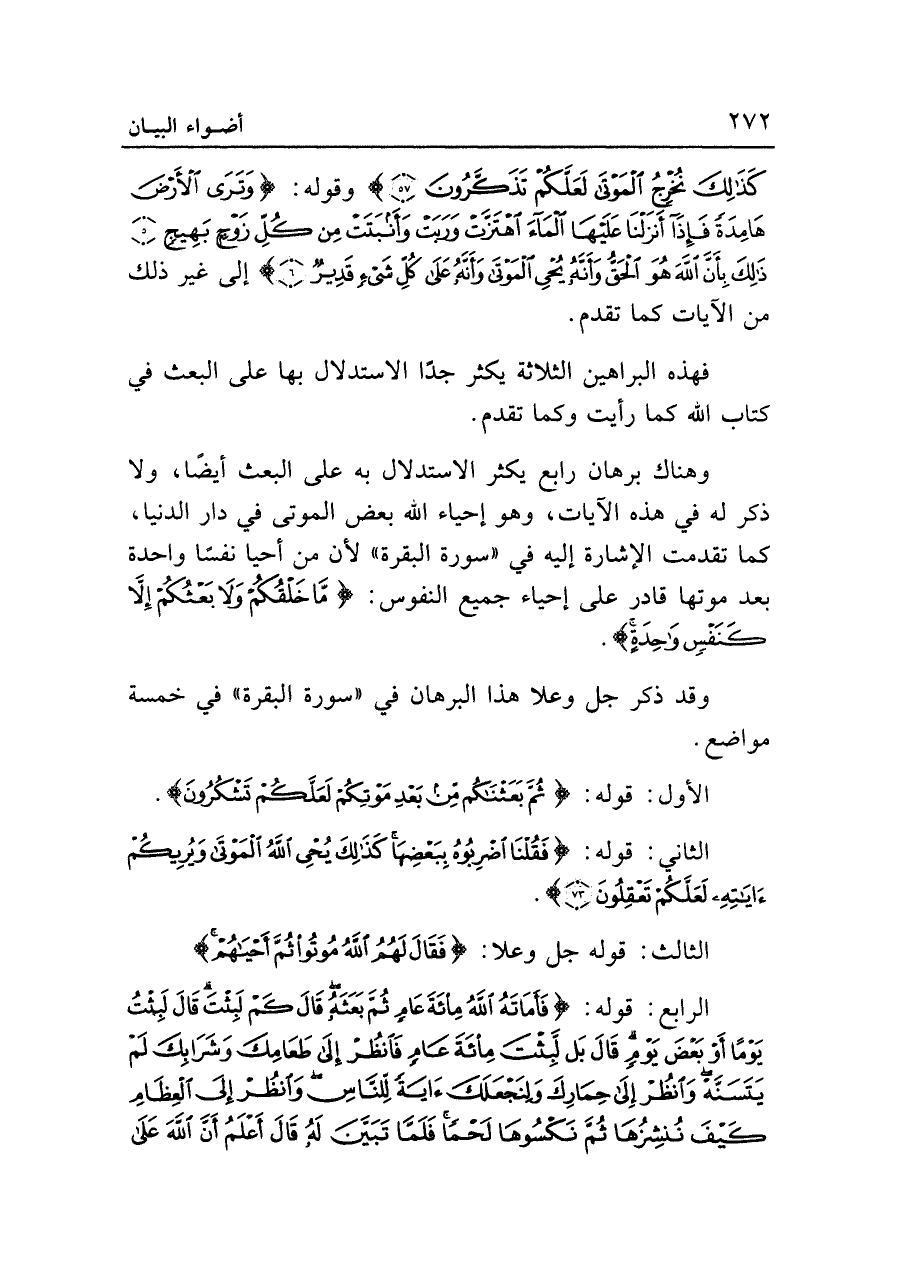 ٢٧٢
أضواء البيان
كَذَٰلِكَ نُخْرِجُ ٱلْمَوْتَىٰ لَعَلَّكُمْ تَذَكَّرُونَ ٥٧﴾ وقوله: ﴿وَتَرَى ٱلْأَرْضَ
هَامِدَةً فَإِذَآ أَنزَلْنَا عَلَيْهَا ٱلْمَآءَ ٱهْتَزَّتْ وَرَبَتْ وَأَنۢبَتَتْ مِن كُلِّ زَوْجٍۭ بَهِيجٍ ٥
ذَٰلِكَ بِأَنَّ ٱللَّهَ هُوَ ٱلْحَقُّ وَأَنَّهُۥ يُحْىِ ٱلْمَوْتَىٰ وَأَنَّهُۥ عَلَىٰ كُلِّ شَىْءٍ قَدِيرٌ ٦﴾ إلى غير ذلك
من الآيات كما تقدم.
فهذه البراهين الثلاثة يكثر جدًا الاستدلال بها على البعث في
كتاب الله كما رأيت وكما تقدم.
وهناك برهان رابع يكثر الاستدلال به على البعث أيضًا، ولا
ذكر له في هذه الآيات، وهو إحياء الله بعض الموتى في دار الدنيا،
كما تقدمت الإشارة إليه في «سورة البقرة» لأن من أحيا نفسًا واحدة
بعد موتها قادر على إحياء جميع النفوس: ﴿مَّا خَلْقُكُمْ وَلَا بَعْثُكُمْ إِلَّا
كَنَفْسٍ وَٰحِدَةٍۚ﴾.
وقد ذكر جل وعلا هذا البرهان في «سورة البقرة» في خمسة
مواضع.
الأول: قوله: ﴿ثُمَّ بَعَثْنَٰكُم مِّنۢ بَعْدِ مَوْتِكُمْ لَعَلَّكُمْ تَشْكُرُونَ﴾.
الثاني: قوله: ﴿فَقُلْنَا ٱضْرِبُوهُ بِبَعْضِهَاۚ كَذَٰلِكَ يُحْىِ ٱللَّهُ ٱلْمَوْتَىٰ وَيُرِيكُمْ
ءَايَٰتِهِۦ لَعَلَّكُمْ تَعْقِلُونَ ٧٣﴾.
الثالث: قوله جل وعلا: ﴿فَقَالَ لَهُمُ ٱللَّهُ مُوتُوا۟ ثُمَّ أَحْيَٰهُمْۚ﴾
الرابع: قوله: ﴿فَأَمَاتَهُ ٱللَّهُ مِا۟ئَةَ عَامٍ ثُمَّ بَعَثَهُۥۖ قَالَ كَمْ لَبِثْتَۖ قَالَ لَبِثْتُ
يَوْمًا أَوْ بَعْضَ يَوْمٍۖ قَالَ بَل لَّبِثْتَ مِا۟ئَةَ عَامٍ فَٱنظُرْ إِلَىٰ طَعَامِكَ وَشَرَابِكَ لَمْ
يَتَسَنَّهْۖ وَٱنظُرْ إِلَىٰ حِمَارِكَ وَلِنَجْعَلَكَ ءَايَةً لِّلنَّاسِۖ وَٱنظُرْ إِلَى ٱلْعِظَامِ
كَيْفَ نُنشِزُهَا ثُمَّ نَكْسُوهَا لَحْمًاۚ فَلَمَّا تَبَيَّنَ لَهُۥ قَالَ أَعْلَمُ أَنَّ ٱللَّهَ عَلَىٰ